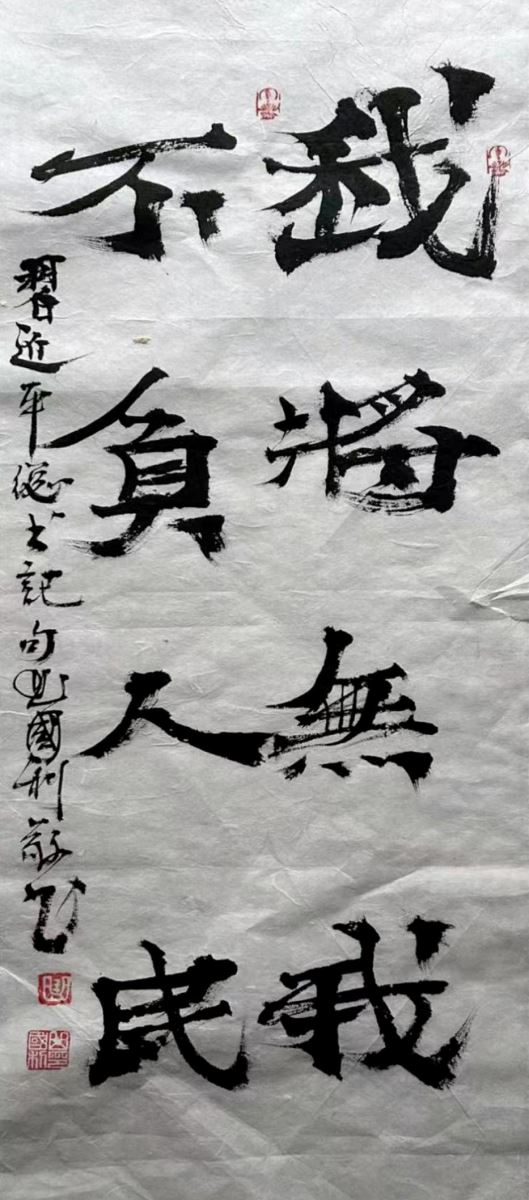 我將無我
不負人民
習近平總书記句 國利敬书